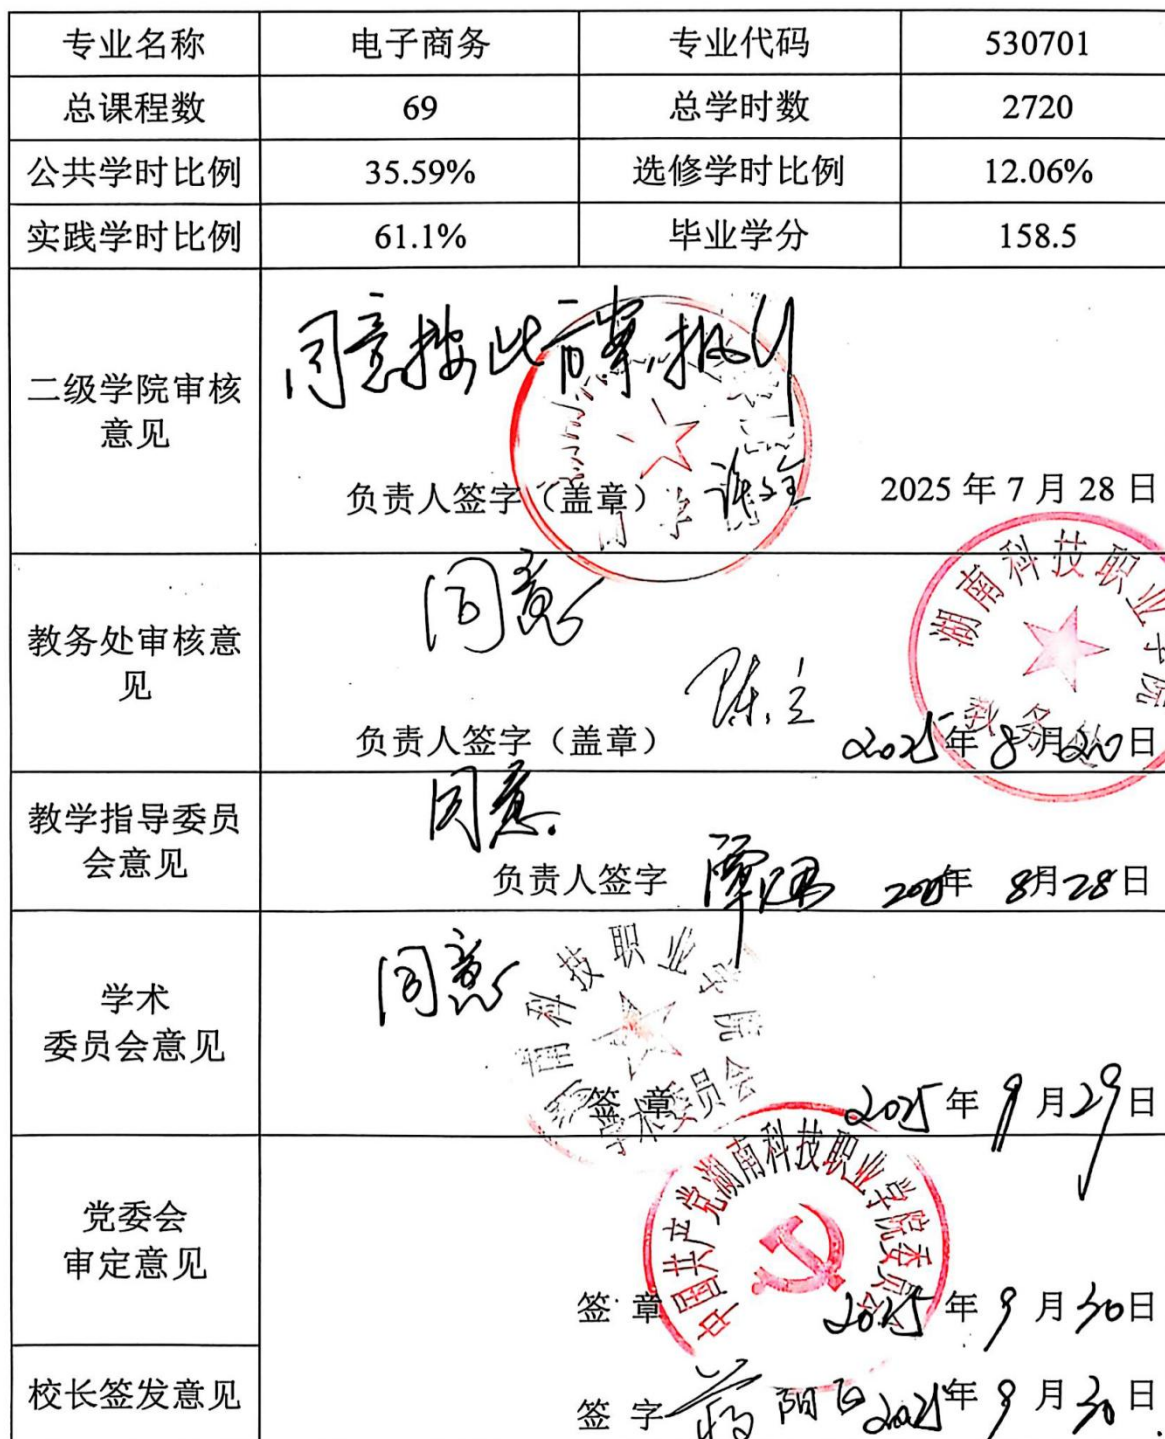 专业名称 电子商务 专业代码 530701
总课程数 69 总学时数 2720
公共学时比例 35.59% 选修学时比例 12.06%
实践学时比例 61.1% 毕业学分 158.5
二级学院审核
意见
同意按此方案执行
负责人签字（盖章）
2025 年 7 月 28 日
教务处审核意
见
同意
湖南科技职业学院
教务处
负责人签字（盖章） 陈立
2025年 8月20日
教学指导委员
会意见
同意.
负责人签字
2025年 8月28日
学术
委员会意见
同意
湖南科技职业学院
学术委员会
签 章
2025 年 9 月29日
党委会
审定意见
中国共产党湖南科技职业学院委员会
签 章
2025 年 9 月30日
校长签发意见
签 字
2025年 9 月30日